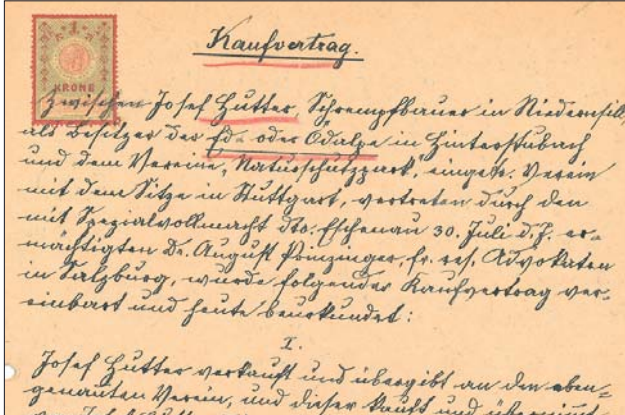 Kaufvertrag.
1
KRONE
Zwischen Josef Hutter, Schrempfbauer in Niedernsill,
als Besitzer der Ed- oder Ödalpe in Hinterstubach
und dem Vereine, Naturschutzpark, eingetr. Verein
mit dem Sitze in Stuttgart, vertreten durch den
mit Spezialvollmacht dto. Eschenau 30. Juli d. J. er-
mächtigten Dr. August Prinzinger, fr. res. Advokaten
in Salzburg, wurde folgender Kaufvertrag ver-
einbart und heute beurkundet:
I.
Josef Hutter verkauft und übergibt an den oben-
genannten Verein, und dieser kauft und übernimmt